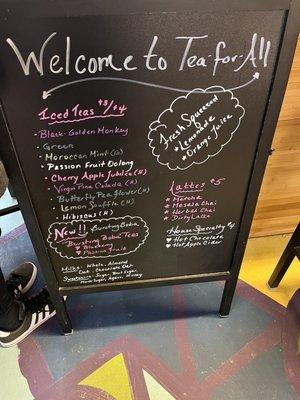 Welcome to Tea-for-All
Iced Teas $3/$4
Black-Golden Monkey
Green
Moroccan Mint (G)
Passion Fruit Oolong
Cherry Apple Jubilee (H)
Virgin Pina Colada (H)
Butterfly Pea Flower (H)
Lemon Soufflé (H)
Hibiscus (H)
New!! Bursting Boba
"Bursting Boba" Teas
Blueberry
Passion Fruit
Milks: Whole, Almond
Chocolate Oat
Sweeteners: Sugar, Brown Sugar,
Agave, Honey
Fresh Squeezed $5
*Lemonade
*Orange Juice
Lattes $5
*Matcha
*Masala Chai
*Herbal Chai
*Dirty Latte
House Specialty $4
Hot Chocolate
Hot Apple Cider